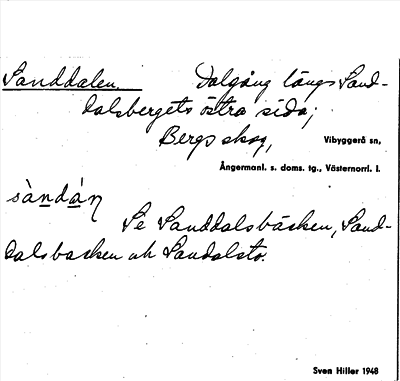 Sanddalen. Dalgång längs Sand-
dalsbergets östra sida;
Bergs skog, Vibyggerå sn,
Ångermanl. s. doms. tg., Västernorrl. l.
sàndán
Se Sanddalsbäcken, Sand-
dalsbacken och Sandalsto.
Sven Hiller 1948